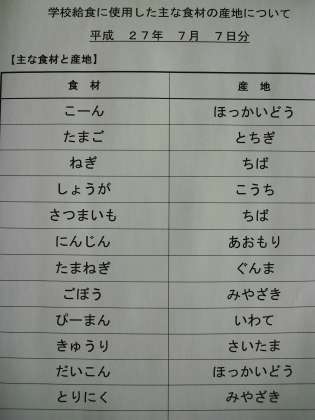 学校給食に使用した主な食材の産地について
平成 27年 7月 7日分
【主な食材と産地】
食材 産地
こーん ほっかいどう
たまご とちぎ
ねぎ ちば
しょうが こうち
さつまいも ちば
にんじん あおもり
たまねぎ ぐんま
ごぼう みやざき
ぴーまん いわて
きゅうり さいたま
だいこん ほっかいどう
とりにく みやざき